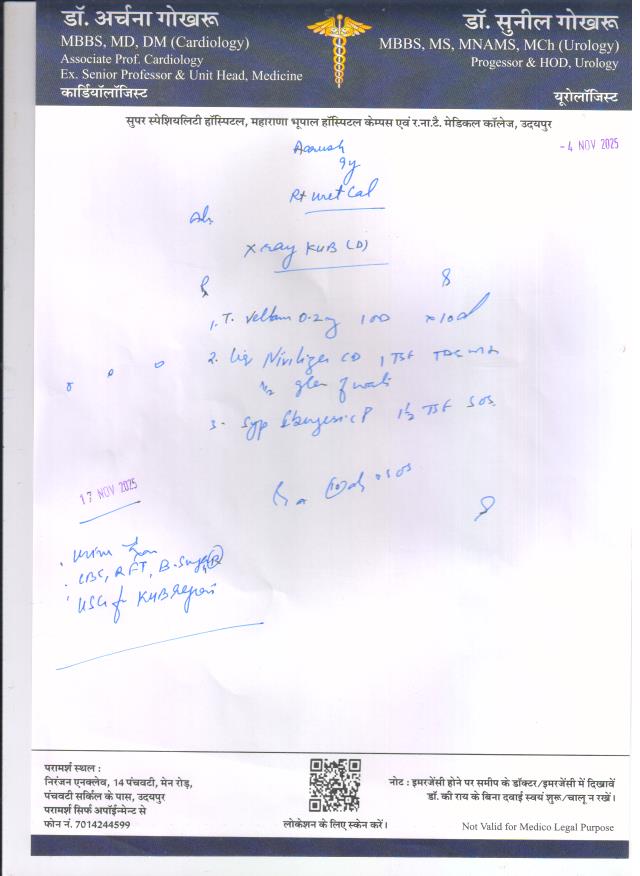 डॉ. अर्चना गोखरू
MBBS, MD, DM (Cardiology)
Associate Prof. Cardiology
Ex. Senior Professor & Unit Head, Medicine
कार्डियॉलॉजिस्ट
डॉ. सुनील गोखरू
MBBS, MS, MNAMS, MCh (Urology)
Progessor & HOD, Urology
यूरोलॉजिस्ट
सुपर स्पेशियलिटी हॉस्पिटल, महाराणा भूपाल हॉस्पिटल कैम्पस एवं र.ना.टै. मेडिकल कॉलेज, उदयपुर
- 4 NOV 2025
Aarush
9y
Rt uret Cal
Adv
X ray KUB (D)
1. T. Veltam 0.2mg 1 OD x 10d
2. Liq 1 TSF TDS
1/2 glass of water
3. Syp P 1½ TSF SOS
17 NOV 2025
CBC, RFT, B.
USG for KUB region
परामर्श स्थल :
निरंजन एनक्लेव, 14 पंचवटी, मेन रोड़,
पंचवटी सर्किल के पास, उदयपुर
परामर्श सिर्फ अपॉईन्मेन्ट से
फोन नं. 7014244599
लोकेशन के लिए स्केन करें।
नोट : इमरजेंसी होने पर समीप के डॉक्टर/इमरजेंसी में दिखावें
डॉ. की राय के बिना दवाई स्वयं शुरू/चालू न रखें।
Not Valid for Medico Legal Purpose